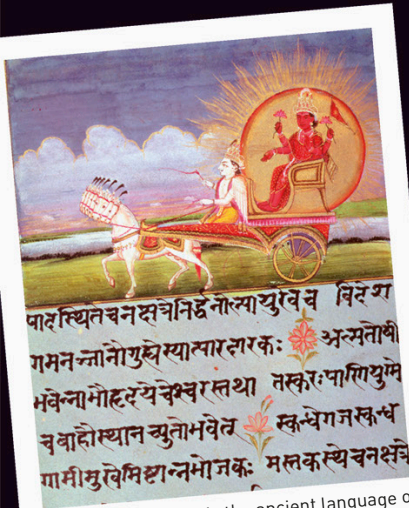 पादस्थितेचनक्षत्रेनिर्द्धनोल्पायुरेवच विदेश
गमनञ्जानौगुह्येस्यात्पारदारकः अल्पतोषी
भवेन्नाभौहृदयेचेश्वरस्तथा तस्करःपाणियुग्मे
चवाहौस्थानच्युतोभवेत् स्कन्धेगजस्कन्ध
गामीमुखेमिष्टान्नभोजकः मस्तकस्थेचनक्षत्रे
the ancient language